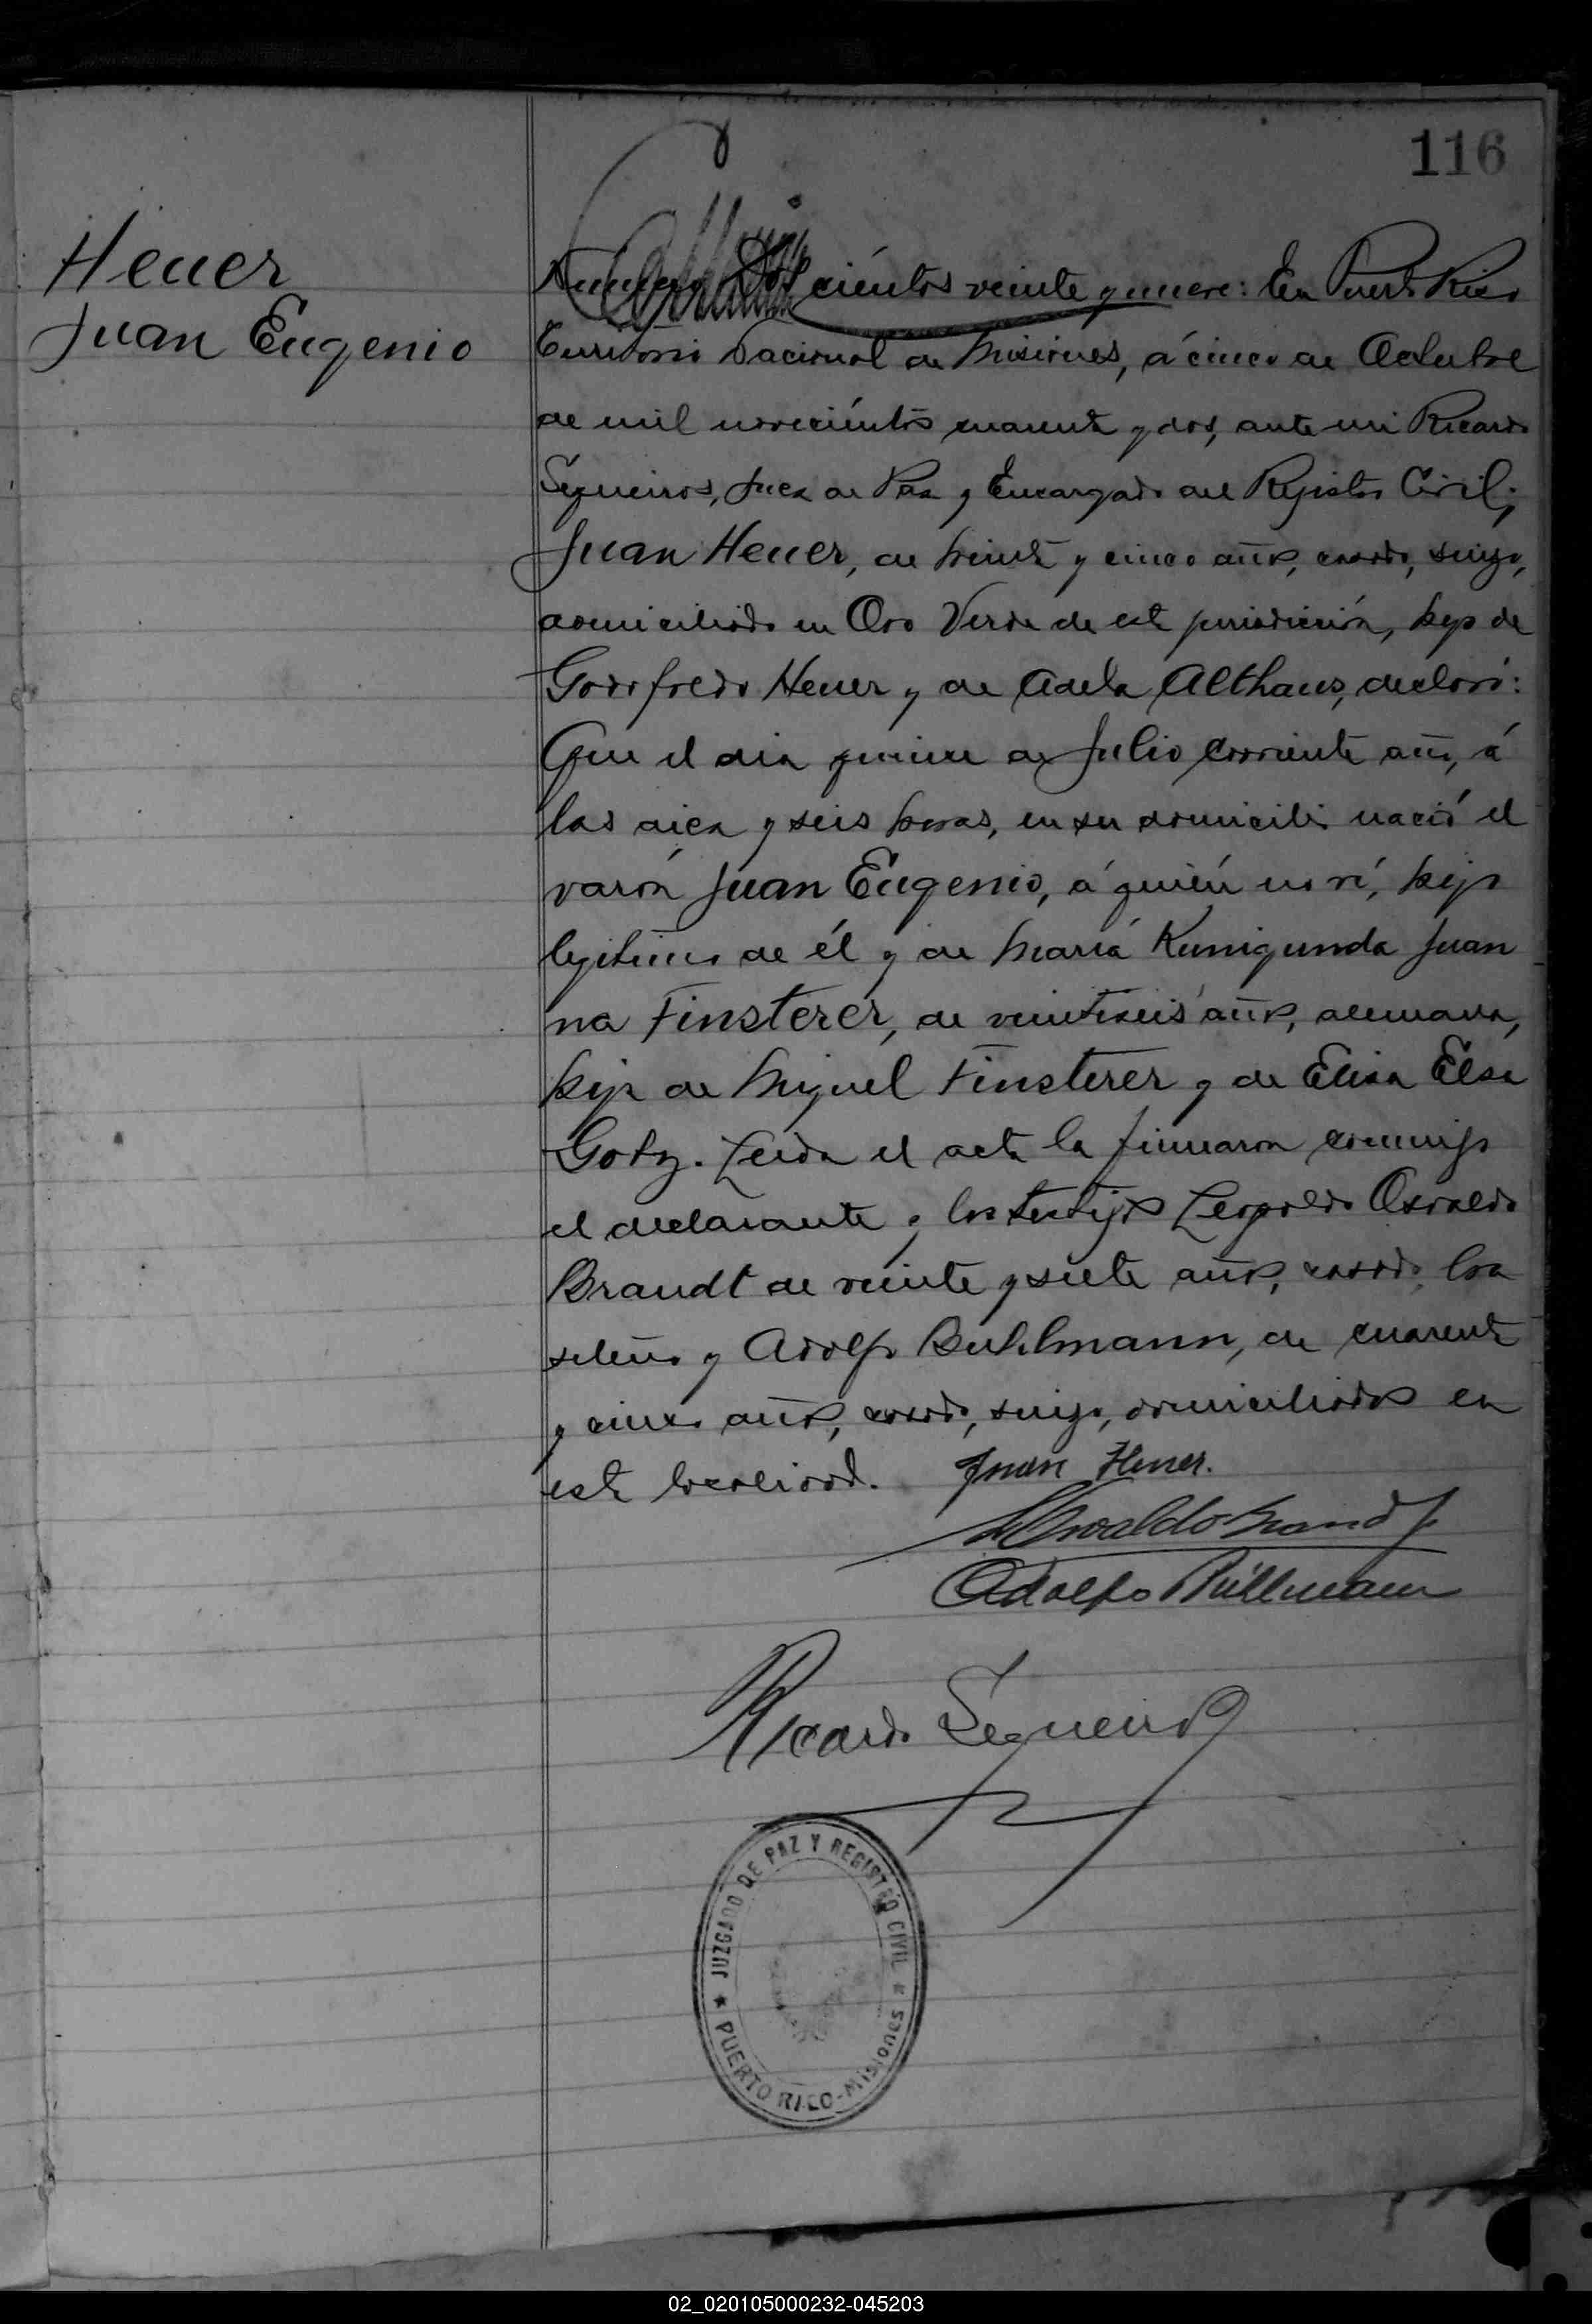 116
Heuer
Juan Eugenio
Número Dos ciéntos veinte y nueve: En Puerto Rico
Territorio Nacional de Misiones, á cinco de Octubre
de mil noveciéntos cuarenta y dos, ante mi Ricardo
Sequeiros, Juez de Paz y Encargado del Registro Civil;
Juan Heuer, de treinta y cinco años, casado, suizo,
domiciliado en Oro Verde de esta jurisdicción, hijo de
Godofredo Heuer y de Adela Althaus, declaró:
Que el dia quince de Julio corriente año, á
las diez y seis horas, en su domicilio nació el
varón Juan Eugenio, á quién no ví, hijo
legítimo de él y de María Kunigunda Juan
na Finsterer, de veintiseis años, alemana,
hija de Miguel Finsterer y de Elisa Elsa
Gotz. Leida el acta la firmaron conmigo
el declarante y los testigos Leopoldo Osvaldo
Brandt de veinte y siete años, casado, bra
sileño y Adolfo Buhlmann, de cuarenta
y cinco años, casado, suizo, domiciliados en
esta localidad. Juan Heuer.
LOswaldo Brandt
Adolfo Büllmann
Ricardo Sequeiros
JUZGADO DE PAZ Y REGISTRO CIVIL
PUERTO RICO-Misiones
02_020105000232-045203